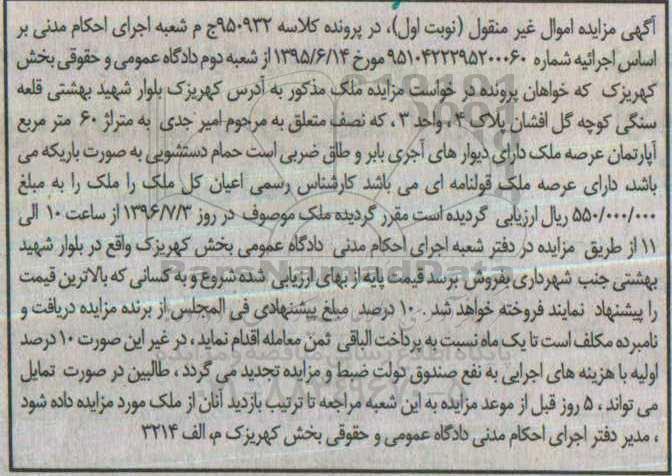 آگهی مزایده اموال غیر منقول (نوبت اول)، در پرونده کلاسه ۹۵۰۹۳۲ج م شعبه اجرای احکام مدنی بر
اساس اجرائیه شماره ۹۵۱۰۴۲۲۲۹۵۲۰۰۰۶۰ مورخ ۱۳۹۵/۶/۱۴ از شعبه دوم دادگاه عمومی و حقوقی بخش
کهریزک که خواهان پرونده در خواست مزایده ملک مذکور به آدرس کهریزک بلوار شهید بهشتی قلعه
سنگی کوچه گل افشان پلاک ۴ ، واحد ۳ ، که نصف متعلق به مرحوم امیر جدی به متراژ ۶۰ متر مربع
آپارتمان عرصه ملک دارای دیوار های آجری بابر و طاق ضربی است حمام دستشویی به صورت باریکه می
باشد، دارای عرصه ملک قولنامه ای می باشد کارشناس رسمی اعیان کل ملک را ملک را به مبلغ
۵۵۰/۰۰۰/۰۰۰ ریال ارزیابی گردیده است مقرر گردیده ملک موصوف در روز ۱۳۹۶/۷/۳ از ساعت ۱۰ الی
۱۱ از طریق مزایده در دفتر شعبه اجرای احکام مدنی دادگاه عمومی بخش کهریزک واقع در بلوار شهید
بهشتی جنب شهرداری بفروش برسد قیمت پایه از بهای ارزیابی شده شروع و به کسانی که بالاترین قیمت
را پیشنهاد نمایند فروخته خواهد شد . ۱۰ درصد مبلغ پیشنهادی فی المجلس از برنده مزایده دریافت و
نامبرده مکلف است تا یک ماه نسبت به پرداخت الباقی ثمن معامله اقدام نماید، در غیر این صورت ۱۰ درصد
اولیه با هزینه های اجرایی به نفع صندوق دولت ضبط و مزایده تجدید می گردد ، طالبین در صورت تمایل
می تواند ، ۵ روز قبل از موعد مزایده به این شعبه مراجعه تا ترتیب بازدید آنان از ملک مورد مزایده داده شود
، مدیر دفتر اجرای احکام مدنی دادگاه عمومی و حقوقی بخش کهریزک م، الف ۳۲۱۴
ParsNamadData